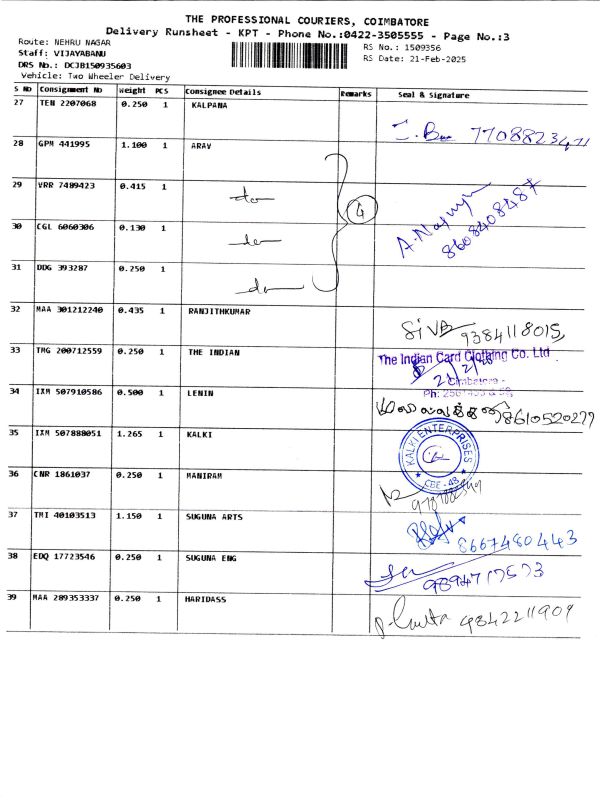 THE PROFESSIONAL COURIERS, COIMBATORE
Delivery Runsheet - KPT - Phone No.:0422-3505555 - Page No.:3
Route: NEHRU NAGAR
Staff: VIJAYABANU
DRS No.: DCJB150935603
Vehicle: Two Wheeler Delivery
RS No.: 1509356
RS Date: 21-Feb-2025
S No Consignment No Weight PCS Consignee Details Remarks Seal & Signature
27 TEN 2207068 0.250 1 KALPANA
28 GPM 441995 1.100 1 ARAV
29 VRR 7489423 0.415 1 do
30 CGL 6060306 0.130 1 do
4
A. 8608408487
31 DDG 393287 0.250 1 do
32 MAA 301212240 0.435 1 RANJITHKUMAR SIVA 9384118015
33 TMG 200712559 0.250 1 THE INDIAN The Indian Card Clothing Co. Ltd
Coimbatore -
34 IXM 507910586 0.500 1 LENIN 9861052027
35 IXM 507888051 1.265 1 KALKI KALKI ENTERPRISES CBE - 43
36 CNR 1861037 0.250 1 MANIRAM
37 TMI 40103513 1.150 1 SUGUNA ARTS 8667480443
38 EDQ 17723546 0.250 1 SUGUNA ENG 9894717573
39 MAA 289353337 0.250 1 HARIDASS 9842211909